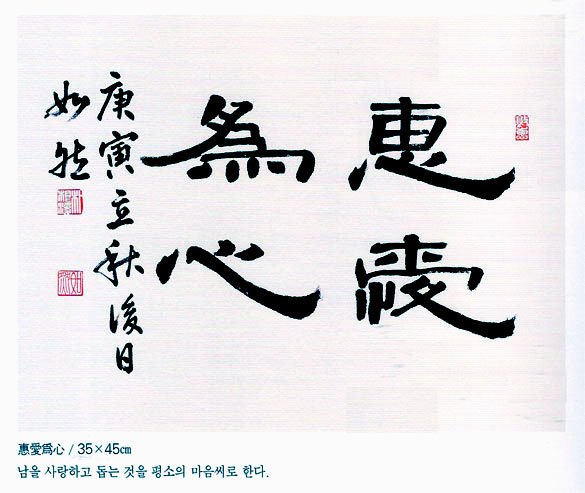 惠愛
爲心
庚寅立秋後日
如然
惠愛爲心 / 35×45㎝
남을 사랑하고 돕는 것을 평소의 마음씨로 한다.